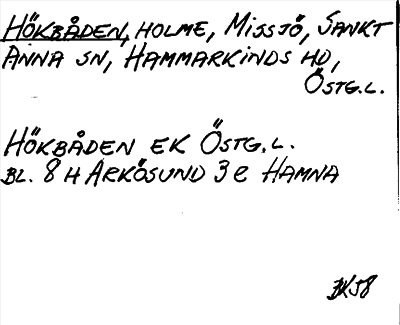 HÖKBÅDEN, HOLME, MISSJÖ, SANKT
ANNA SN, HAMMARKINDS HD,
ÖSTG.L.
HÖKBÅDEN EK ÖSTG.L.
BL. 8 H ARKÖSUND 3 e HAMNA